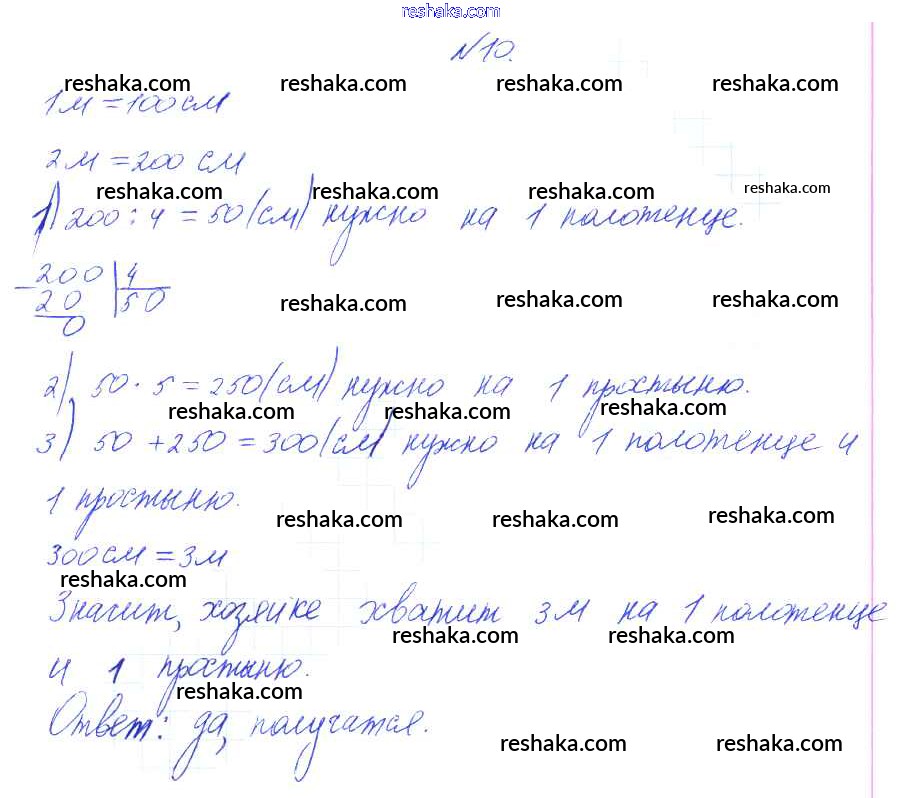 reshaka.com
№10.
reshaka.com reshaka.com reshaka.com reshaka.com
1м = 100 см
2м = 200 см
reshaka.com reshaka.com reshaka.com reshaka.com
1) 200 : 4 = 50 (см) нужно на 1 полотенце.
200 | 4
20 | 50
0
reshaka.com reshaka.com reshaka.com
2) 50 · 5 = 250 (см) нужно на 1 простыню.
reshaka.com reshaka.com reshaka.com
3) 50 + 250 = 300 (см) нужно на 1 полотенце и
1 простыню.
reshaka.com reshaka.com reshaka.com
300 см = 3м
reshaka.com
Значит, хозяйке хватит 3м на 1 полотенце
reshaka.com reshaka.com
и 1 простыню.
reshaka.com
Ответ: да, получатся.
reshaka.com reshaka.com